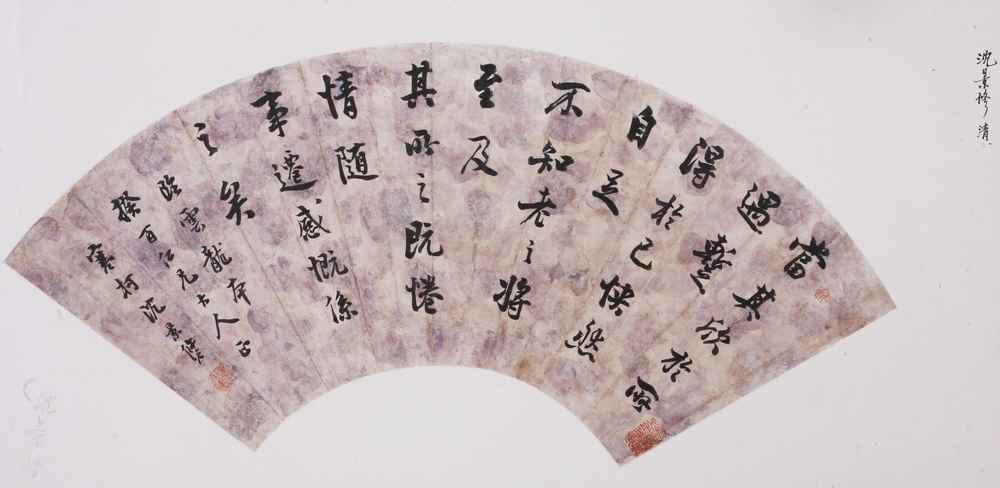 當其欣於所
遇蹔
得於己快然
自足
不知老之將
至及
其所之既惓
情随
事遷感慨係
之矣
臨雲龍本
揆百仁兄大人正
寒柯沈景修
沈景修 清